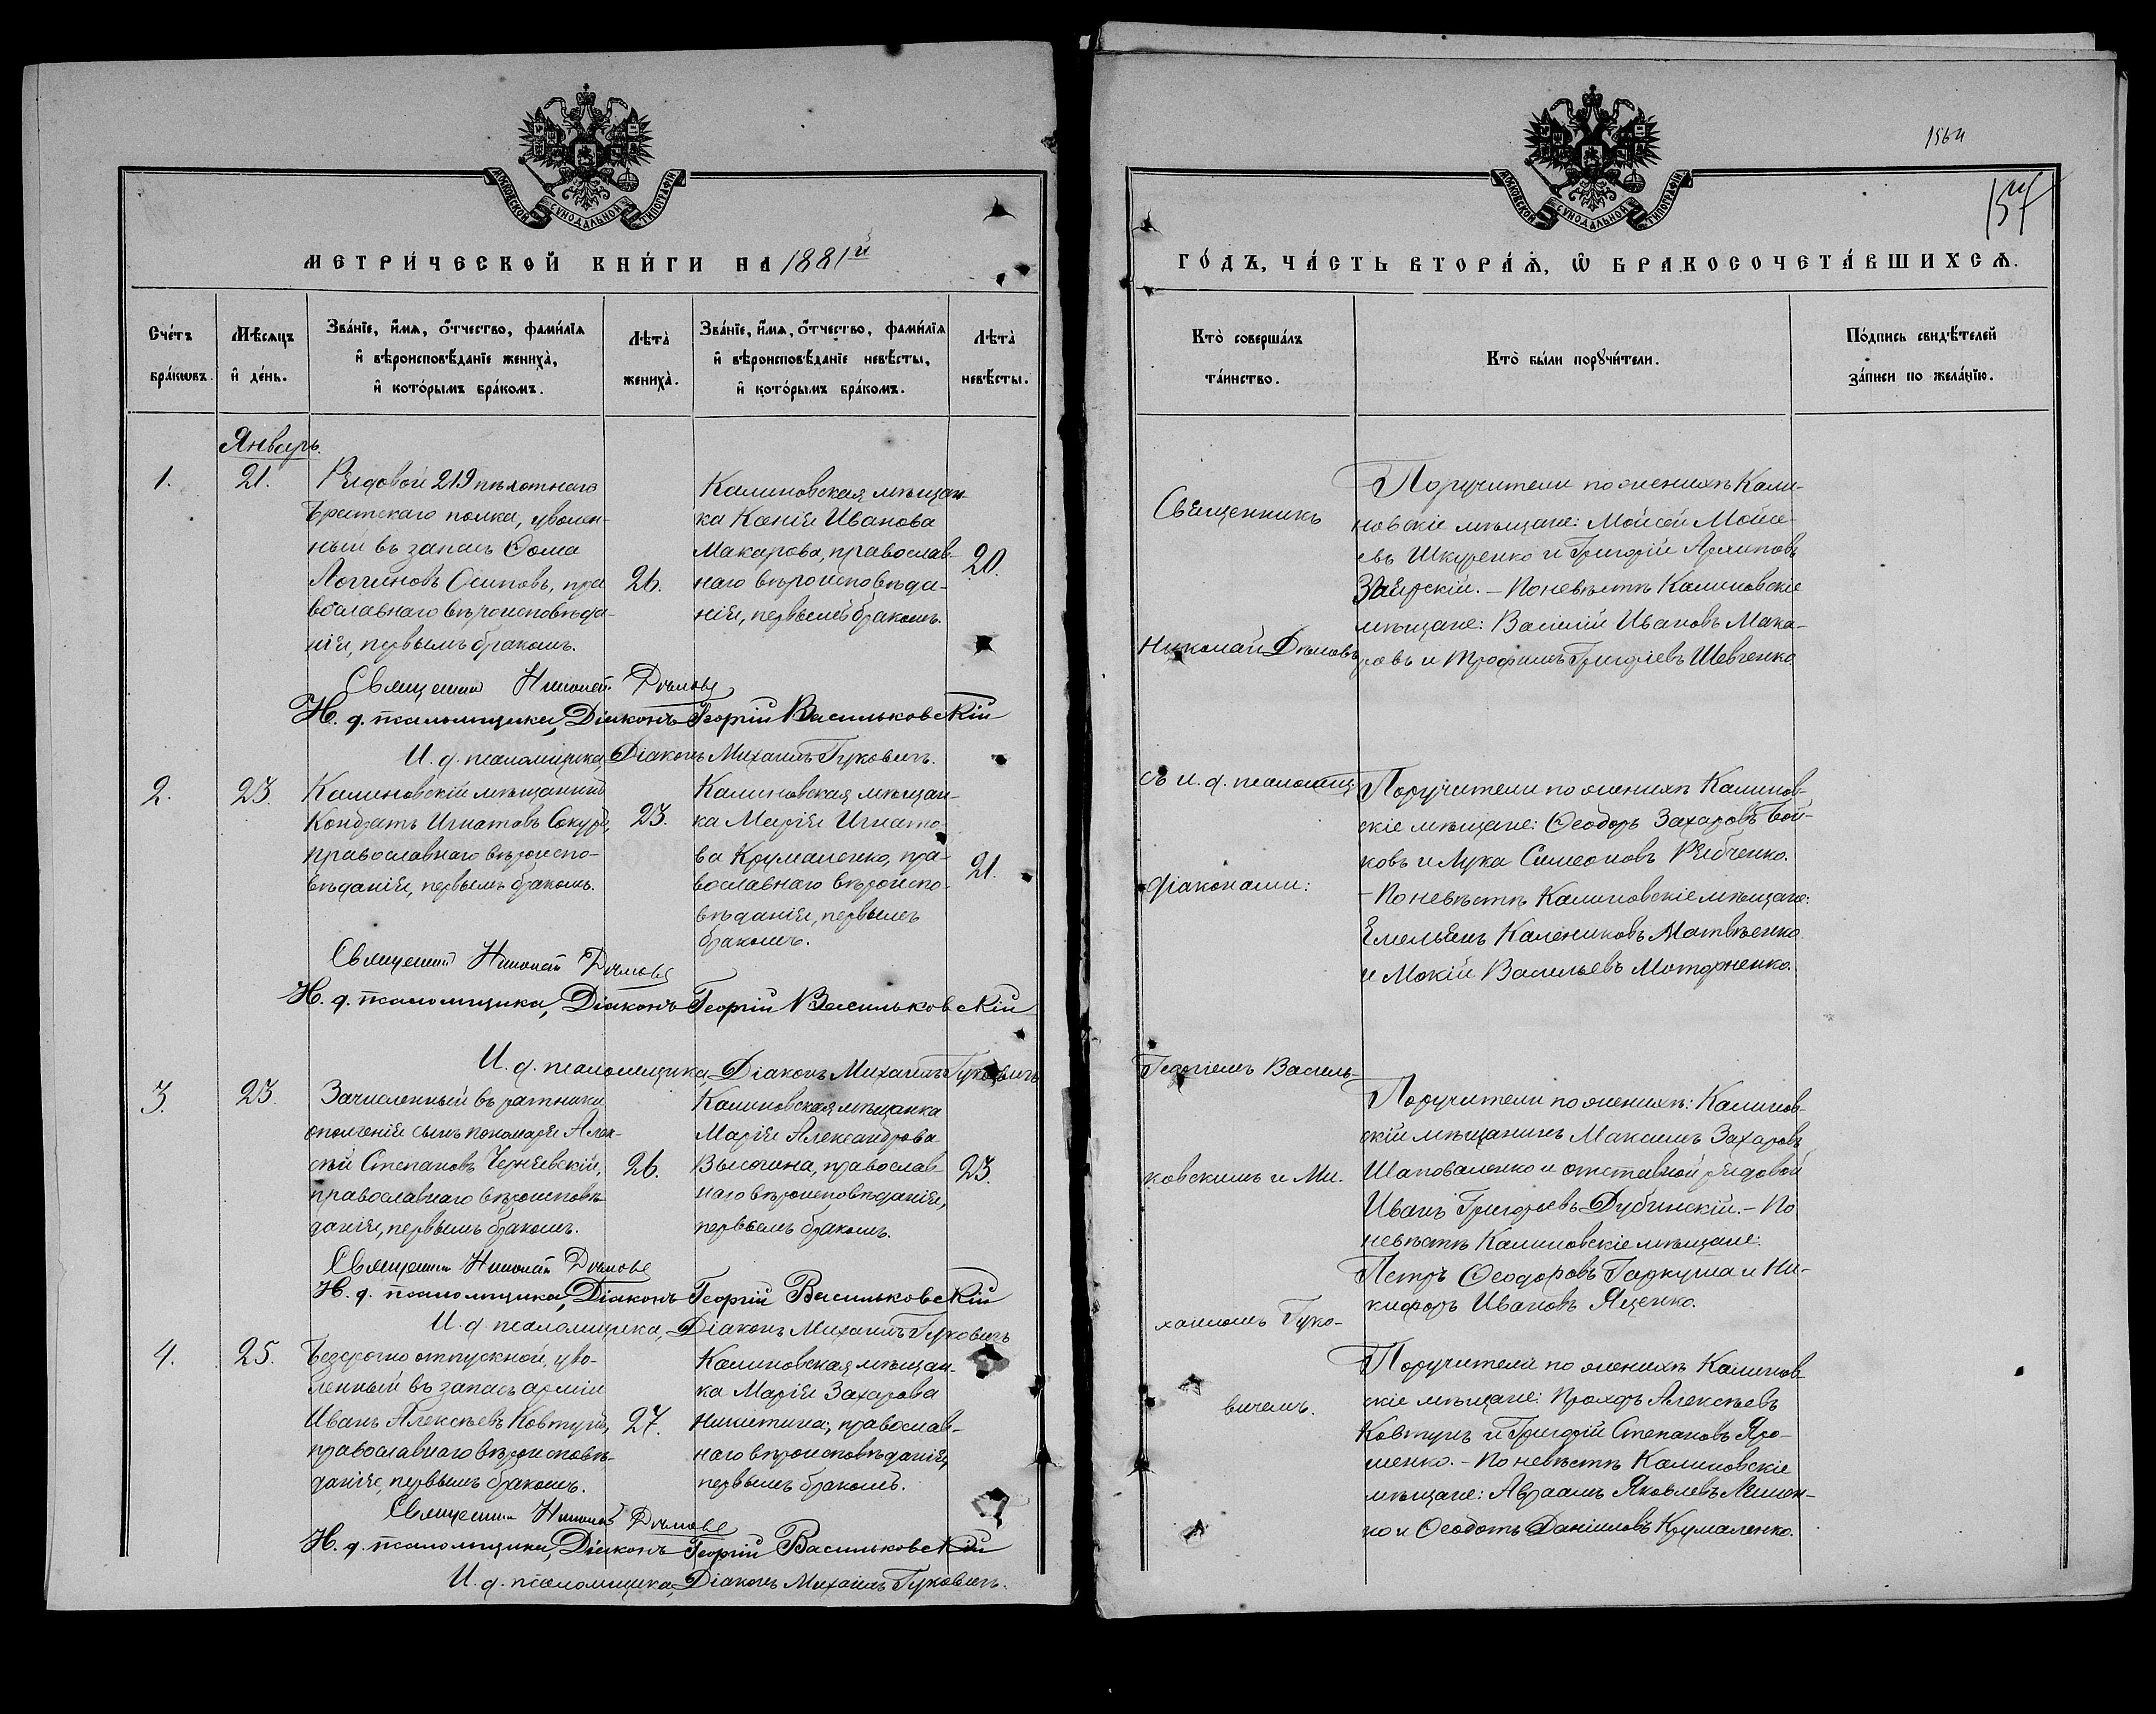 МОСКОВСКОЙ СѴНОДАЛЬНОЙ ТИПОГРАФІИ
МЕТРИ́ЧЕСКОЙ КНИ́ГИ НА 1881й
Сче́тъ бра́кωвъ.
Мѣ́сяцъ и҆ де́нь.
Зва́нїе, и҆́мѧ, ѻ҆́тчество, фами́лїѧ
и҆ вѣроисповѣ́данїе жениха̀,
и҆ кото́рымъ бра́комъ.
Лѣта̀ жениха̀.
Зва́нїе, и҆́мѧ, ѻ҆́тчество, фами́лїѧ
и҆ вѣроисповѣ́данїе невѣ́сты,
и҆ кото́рымъ бра́комъ.
Лѣта̀ невѣ́сты.
Январь.
1.
21.
Рядовой 219 пѣхотнаго
Брестскаго полка, уволен-
ный въ запасъ Ѳома
Логгиновъ Осиповъ, пра
вославнаго вѣроисповѣда-
нія, первымъ бракомъ.
26.
Калиновская мѣщан-
ка Ксенія Иванова
Макарова, православ-
наго вѣроисповѣда-
нія, первымъ бракомъ.
20.
Священникъ Николай Дьымовъ
И. д. псаломщика, Діаконъ Георгій Васильковскій
И. д. псаломщика, Діаконъ Михаилъ Гуковичъ.
2.
23.
Калиновскій мѣщанинъ
Кондратъ Игнатовъ Сокуръ,
православнаго вѣроиспо-
вѣданія, первымъ бракомъ.
23.
Калиновская мѣщан-
ка Марія Игнато-
ва Крумаленко, пра-
вославнаго вѣроиспо-
вѣданія, первымъ
бракомъ.
21.
Священникъ Николай
И. д. псаломщика, Діаконъ Георгій Васильковскій
И. д. псаломщика, Діаконъ Михаилъ Гуковичъ
3.
23.
Зачисленный въ ратники
ополченія сынъ пономаря Алек-
сѣй Степановъ Чернявскій,
православнаго вѣроисповѣ-
данія, первымъ бракомъ.
26.
Калиновская мѣщанка
Марія Александрова
Высочина, православ-
наго вѣроисповѣданія,
первымъ бракомъ.
23.
Священникъ Николай
И. д. псаломщика, Діаконъ Георгій Васильковскій
И. д. псаломщика, Діаконъ Михаилъ Гуковичъ
4.
25.
Безсрочно отпускной, уво-
ленный въ запасъ арміи
Иванъ Алексѣевъ Ковтунъ,
православнаго вѣроисповѣ-
данія, первымъ бракомъ.
27.
Калиновская мѣщан-
ка Марія Захарова
Никитина, православ-
наго вѣроисповѣданія,
первымъ бракомъ.
Священникъ Николай
И. д. псаломщика, Діаконъ Георгій Васильковскій
И. д. псаломщика, Діаконъ Михаилъ Гуковичъ.
МОСКОВСКОЙ СѴНОДАЛЬНОЙ ТИПОГРАФІИ
ГО́ДЪ, ЧА́СТЬ ВТОРА́Ѧ, Ѽ БРАКОСОЧЕТА́ВШИХСѦ.
Кто̀ соверша́лъ
та́инство.
Кто̀ бы́ли порꙋчи́тели.
По́дпись свидѣ́телей
за́писи по жела́нїю.
Священникъ
Николай
съ и. д. псаломщ.
діаконами:
Георгіемъ Василь-
ковскимъ и Ми-
хаиломъ Гуко-
вичемъ.
Поручители по женихѣ Кали-
новскіе мѣщане: Мойсей Мойсе-
евъ Шкуренко и Григорій Архиповъ
По невѣстѣ Калиновскіе
мѣщане: Василій Ивановъ Мака-
ровъ и Трофимъ Григорьевъ Шевченко
Поручители по женихѣ Калинов-
скіе мѣщане: Ѳеодоръ Захаровъ Бой-
ковъ и Лука Симеоновъ Рябченко.
– По невѣстѣ Калиновскіе мѣщане:
Емельянъ Калениковъ Матвѣенко
и Мокій Васильевъ Моторненко.
Поручители по женихѣ: Калинов-
скій мѣщанинъ Максимъ Захаровъ
Шаповаленко и отставной рядовой
Иванъ Григорьевъ Дубинскій. – По
невѣстѣ Калиновскіе мѣщане:
Петръ Ѳеодоровъ Гаркуша и Ни-
кифоръ Ивановъ Яценко.
Поручители по женихѣ Калинов-
скіе мѣщане: Прохоръ Алексѣевъ
Ковтунъ и Григорій Степановъ Яро-
шенко. – По невѣстѣ Калиновскіе
мѣщане: Авраамъ Яковлевъ
и Ѳеодотъ Даніиловъ Крумаленко.